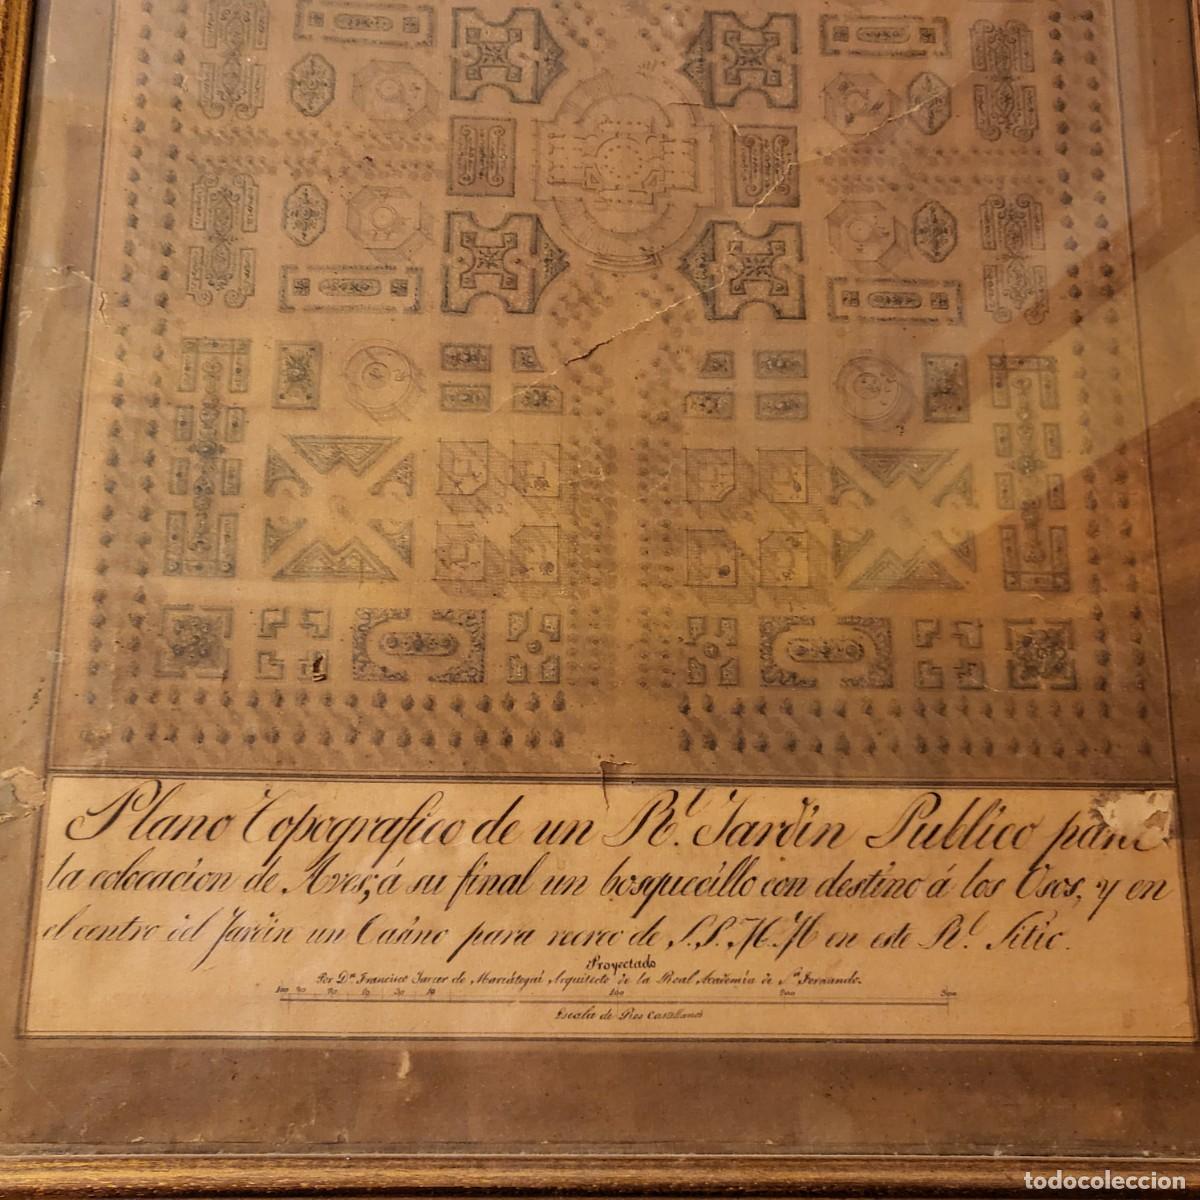 Plano Topografico de un Rl. Jardin Publico para
la colocacion de Aves; á su final un bosquecillo con destino á los Osos, y en
el centro del Jardin un Casino para recreo de S.S.M.M en este Rl. Sitio.
Proyectado
Por Dn. Francisco Javier de Mariátegui Arquitecto de la Real Academia de Sn. Fernando.
100 90 70 50 30 10 100 200 300
Escala de Pies Castellanos
todocoleccion